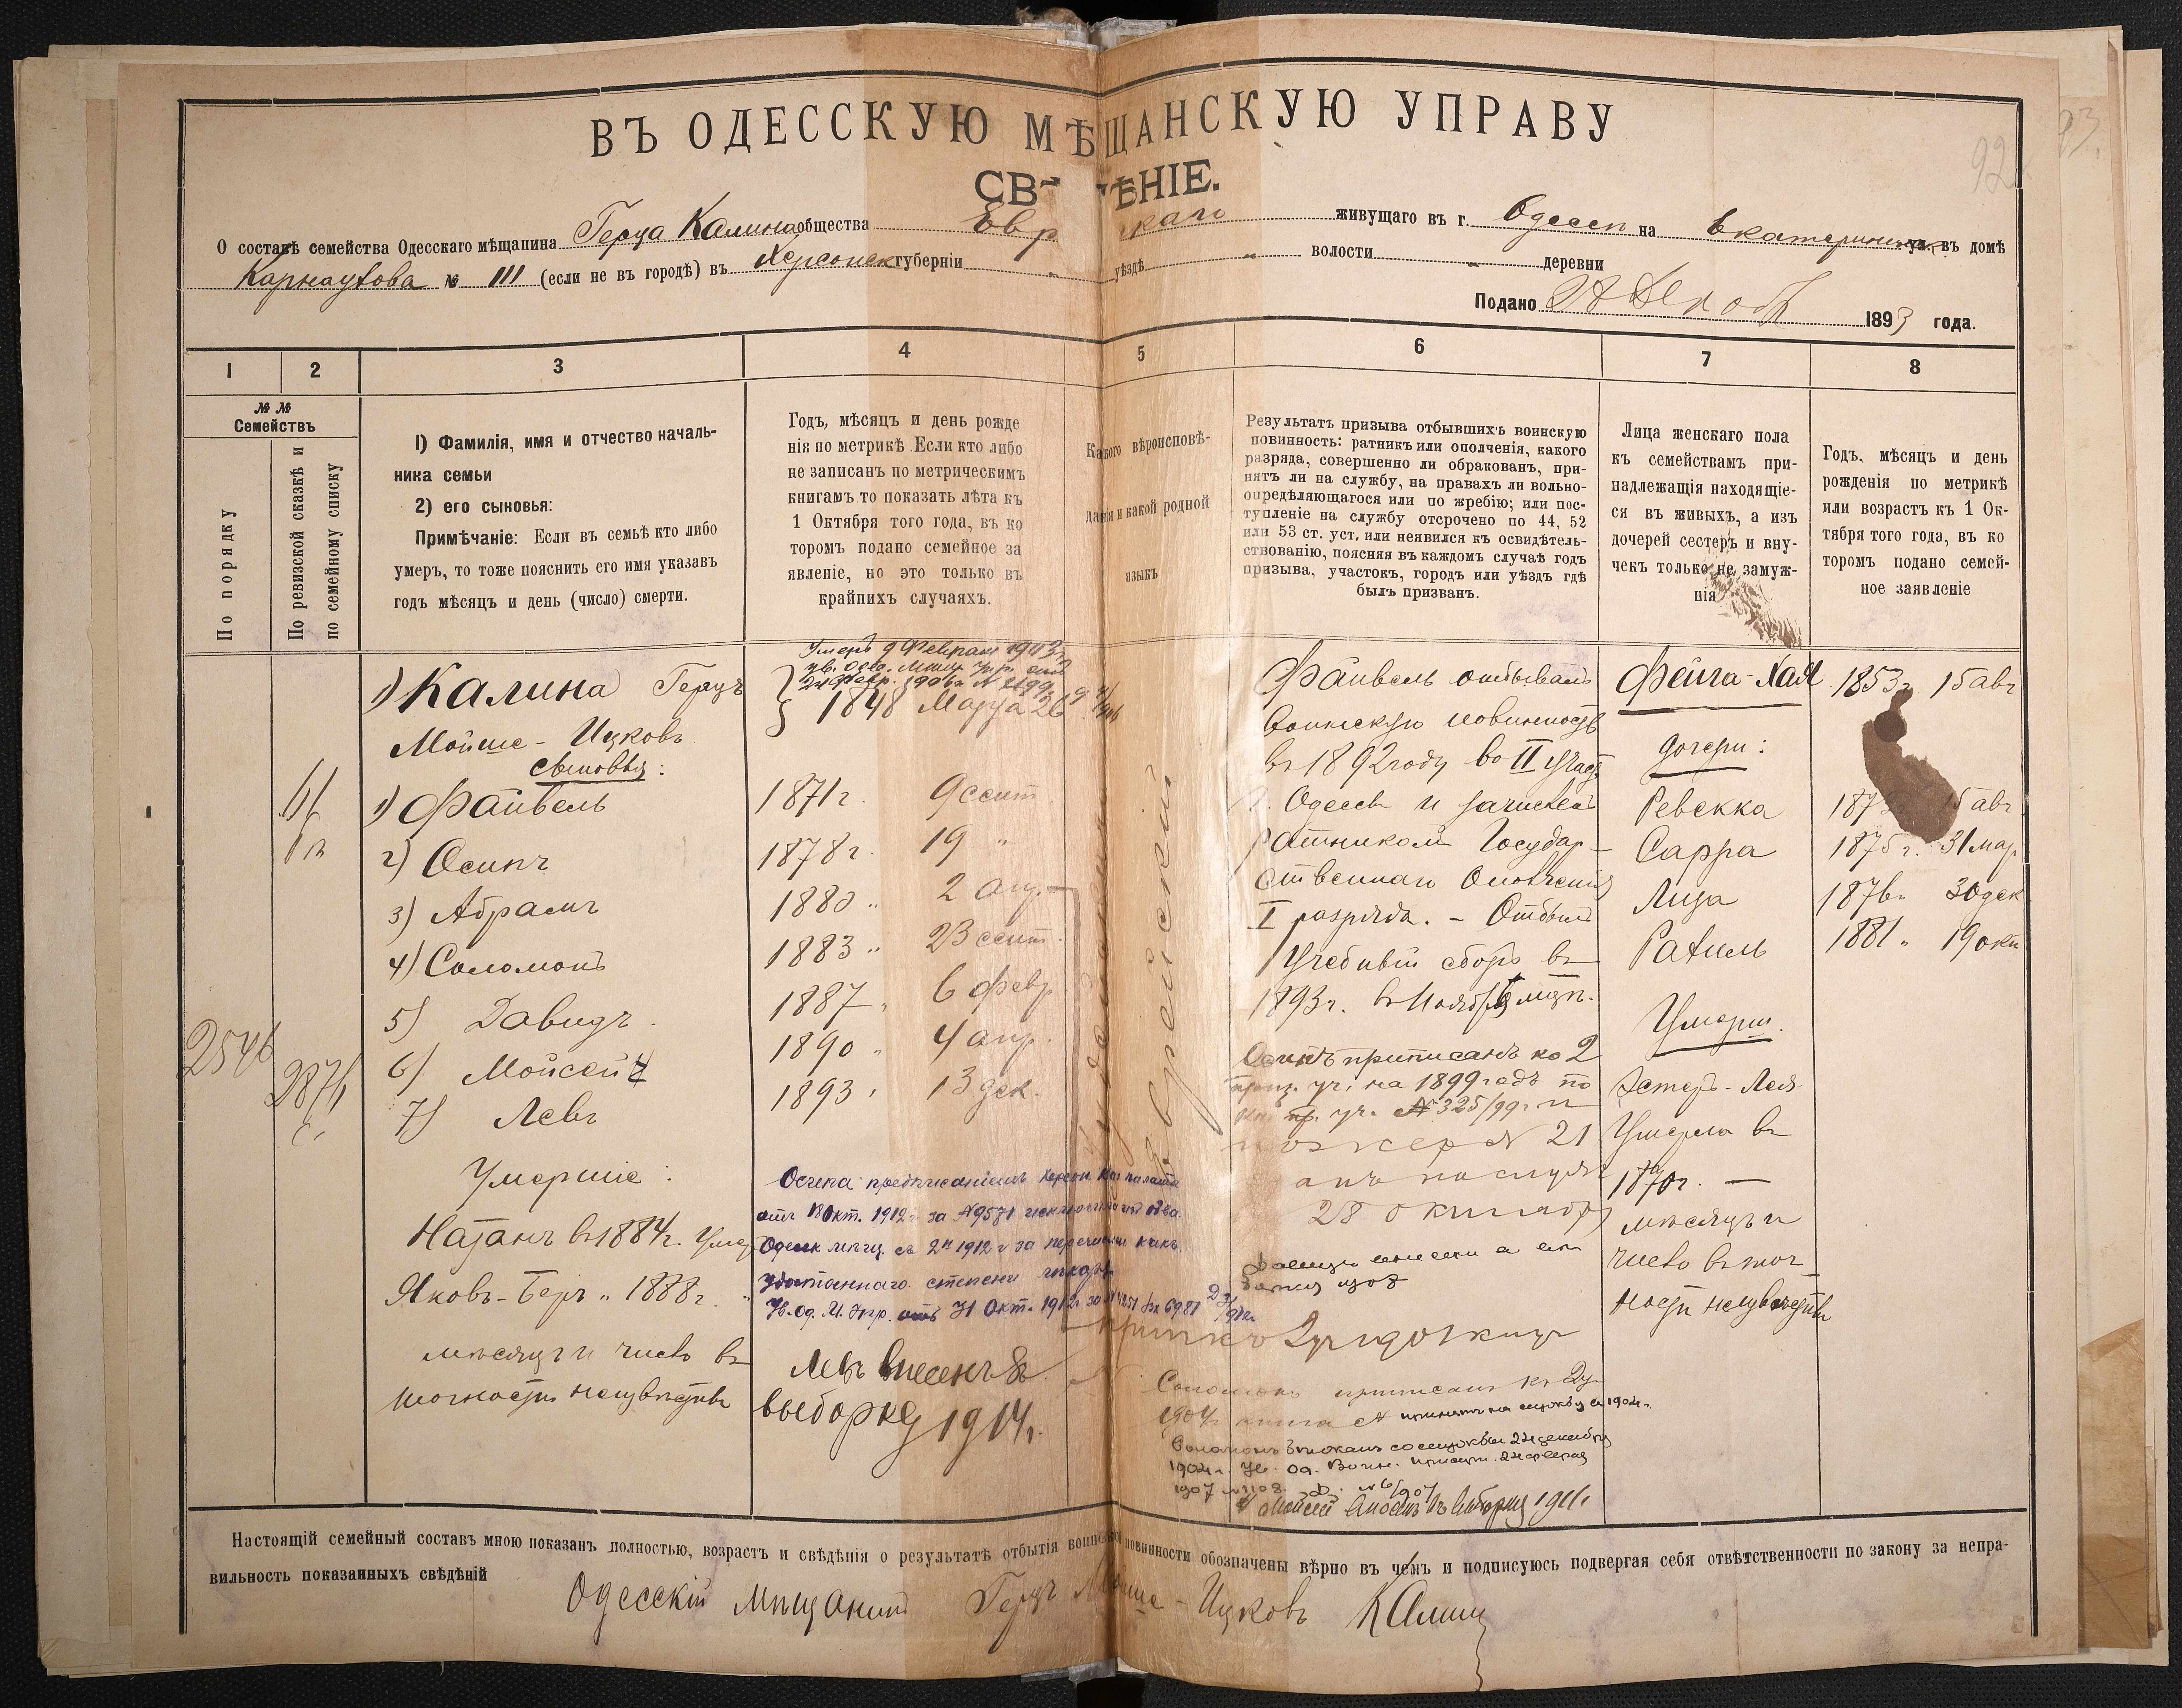 92
93.
ВЪ ОДЕССКУЮ МѢЩАНСКУЮ УПРАВУ
СВ ѢНІЕ.
О составѣ семейства Одесскаго мѣщанина Герца Калина общества Евр каго живущаго въ г. Одессѣ на Екатерининск ул. въ домѣ
Карнаухова № 111 (если не въ городѣ) въ Херсонск губерніи " уѣздѣ " волости " деревни
Подано 28 Декабр 1893 года.
1 2 3 4 5 6 7 8
№ №
Семействъ
По порядку
По ревизской сказкѣ и
по семейному списку
1) Фамилія, имя и отчество началь-
ника семьи
2) его сыновья:
Примѣчаніе: Если въ семьѣ кто либо
умеръ, то тоже пояснить его имя указавъ
годъ мѣсяцъ и день (число) смерти.
Годъ, мѣсяцъ и день рожде
нія по метрикѣ. Если кто либо
не записанъ по метрическимъ
книгамъ то показать лѣта къ
1 Октября того года, въ ко
торомъ подано семейное за
явленіе, но это только въ
крайнихъ случаяхъ.
Какого вѣроисповѣ-
данія и какой родной
языкъ
Результатъ призыва отбывшихъ воинскую
повинность: ратникъ или ополченія, какого
разряда, совершенно ли обракованъ, при-
нятъ ли на службу, на правахъ ли вольно-
опредѣляющагося или по жребію; или пос-
тупленіе на службу отсрочено по 44, 52
или 53 ст. уст, или неявился къ освидѣтель-
ствованію, поясняя въ каждомъ случаѣ годъ
призыва, участокъ, городъ или уѣздъ гдѣ
былъ призванъ.
Лица женскаго пола
къ семействамъ при-
надлежащія находящіе-
ся въ живыхъ, а изъ
дочерей сестеръ и вну-
чекъ только не замуж-
нія
Годъ, мѣсяцъ и день
рожденія по метрикѣ
или возрастъ къ 1 Ок-
тября того года, въ ко
торомъ подано семей-
ное заявленіе
2546
2876
1) Калина Герцъ
Мойше-Ицковъ
сыновья:
1) Файвель
2) Осипъ
3) Абрамъ
4) Соломонъ
5) Давидъ.
6) Мойсей
7) Левъ
Умершіе:
Натанъ въ 1884г. Умер
Яковъ-Беръ " 1888г. "
мѣсяцъ и число въ
точности неизвѣстны
Умеръ 9 Февраля 1903
24 Февр. 1906г. №
1848 Марта 26
1871г. 9 сент
1878г. 19 "
1880 " 2 апр.
1883 " 23 сент.
1887 " 6 февр
1890 " 4 апр.
1893 " 13 дек.
Осипа предписаніемъ Херсон. Каз палаты
отъ 18 Окт. 1912г за №9581 исключенъ изъ об-ва
Одесск мѣщ. съ 2 п 1912 г за перечислен какъ
удостоеннаго степени лекаря
Ув. Од. М. Упр. отъ 31 Окт. 1912г
Левъ внесенъ въ
выборку 1914г.
Іудейскій
Еврейскій
Файвель отбывалъ
воинскую повинность
въ 1892 году во II участ
г. Одессы и зачисленъ
ратникомъ Государ-
ственнаго Ополченія
I разряда. - Отбылъ
Учебный сборъ въ
1893г. въ Ноябрѣ мѣс.
Осипъ приписанъ ко 2
приз. уч. на 1899 годъ по
пр. уч. №325/99г и
жер № 21
28 октября
Соломонъ приписанъ къ 2 у
1904г книга № принятъ на службу съ 1904г.
Соломонъ со службы 24 декабря
1904г. Ув. Од. Воин. присут. 24 февраля
1907 №1108. Д. №6/907
Мойсей внесенъ въ выборку 1911
Фейга-Хая 1853г. 15 авг
дочери:
Ревекка 187 15 авг
Сарра 1875г. 31 мар
Лиза 1876г 30 дек
Рахиль 1881 " 19 окт
Умерш.
Эстеръ-Лея
Умерла въ
1870г. —
мѣсяцъ и
число въ точ-
ности неизвѣстны
Настоящій семейный составъ мною показанъ полностью, возрастъ и свѣдѣнія о результатѣ отбытія воинской повинности обозначены вѣрно въ чемъ и подписуюсь подвергая себя отвѣтственности по закону за непра-
вильность показанныхъ свѣдѣній
Одесскій мѣщанинъ Герцъ Мойше-Ицковъ Калина